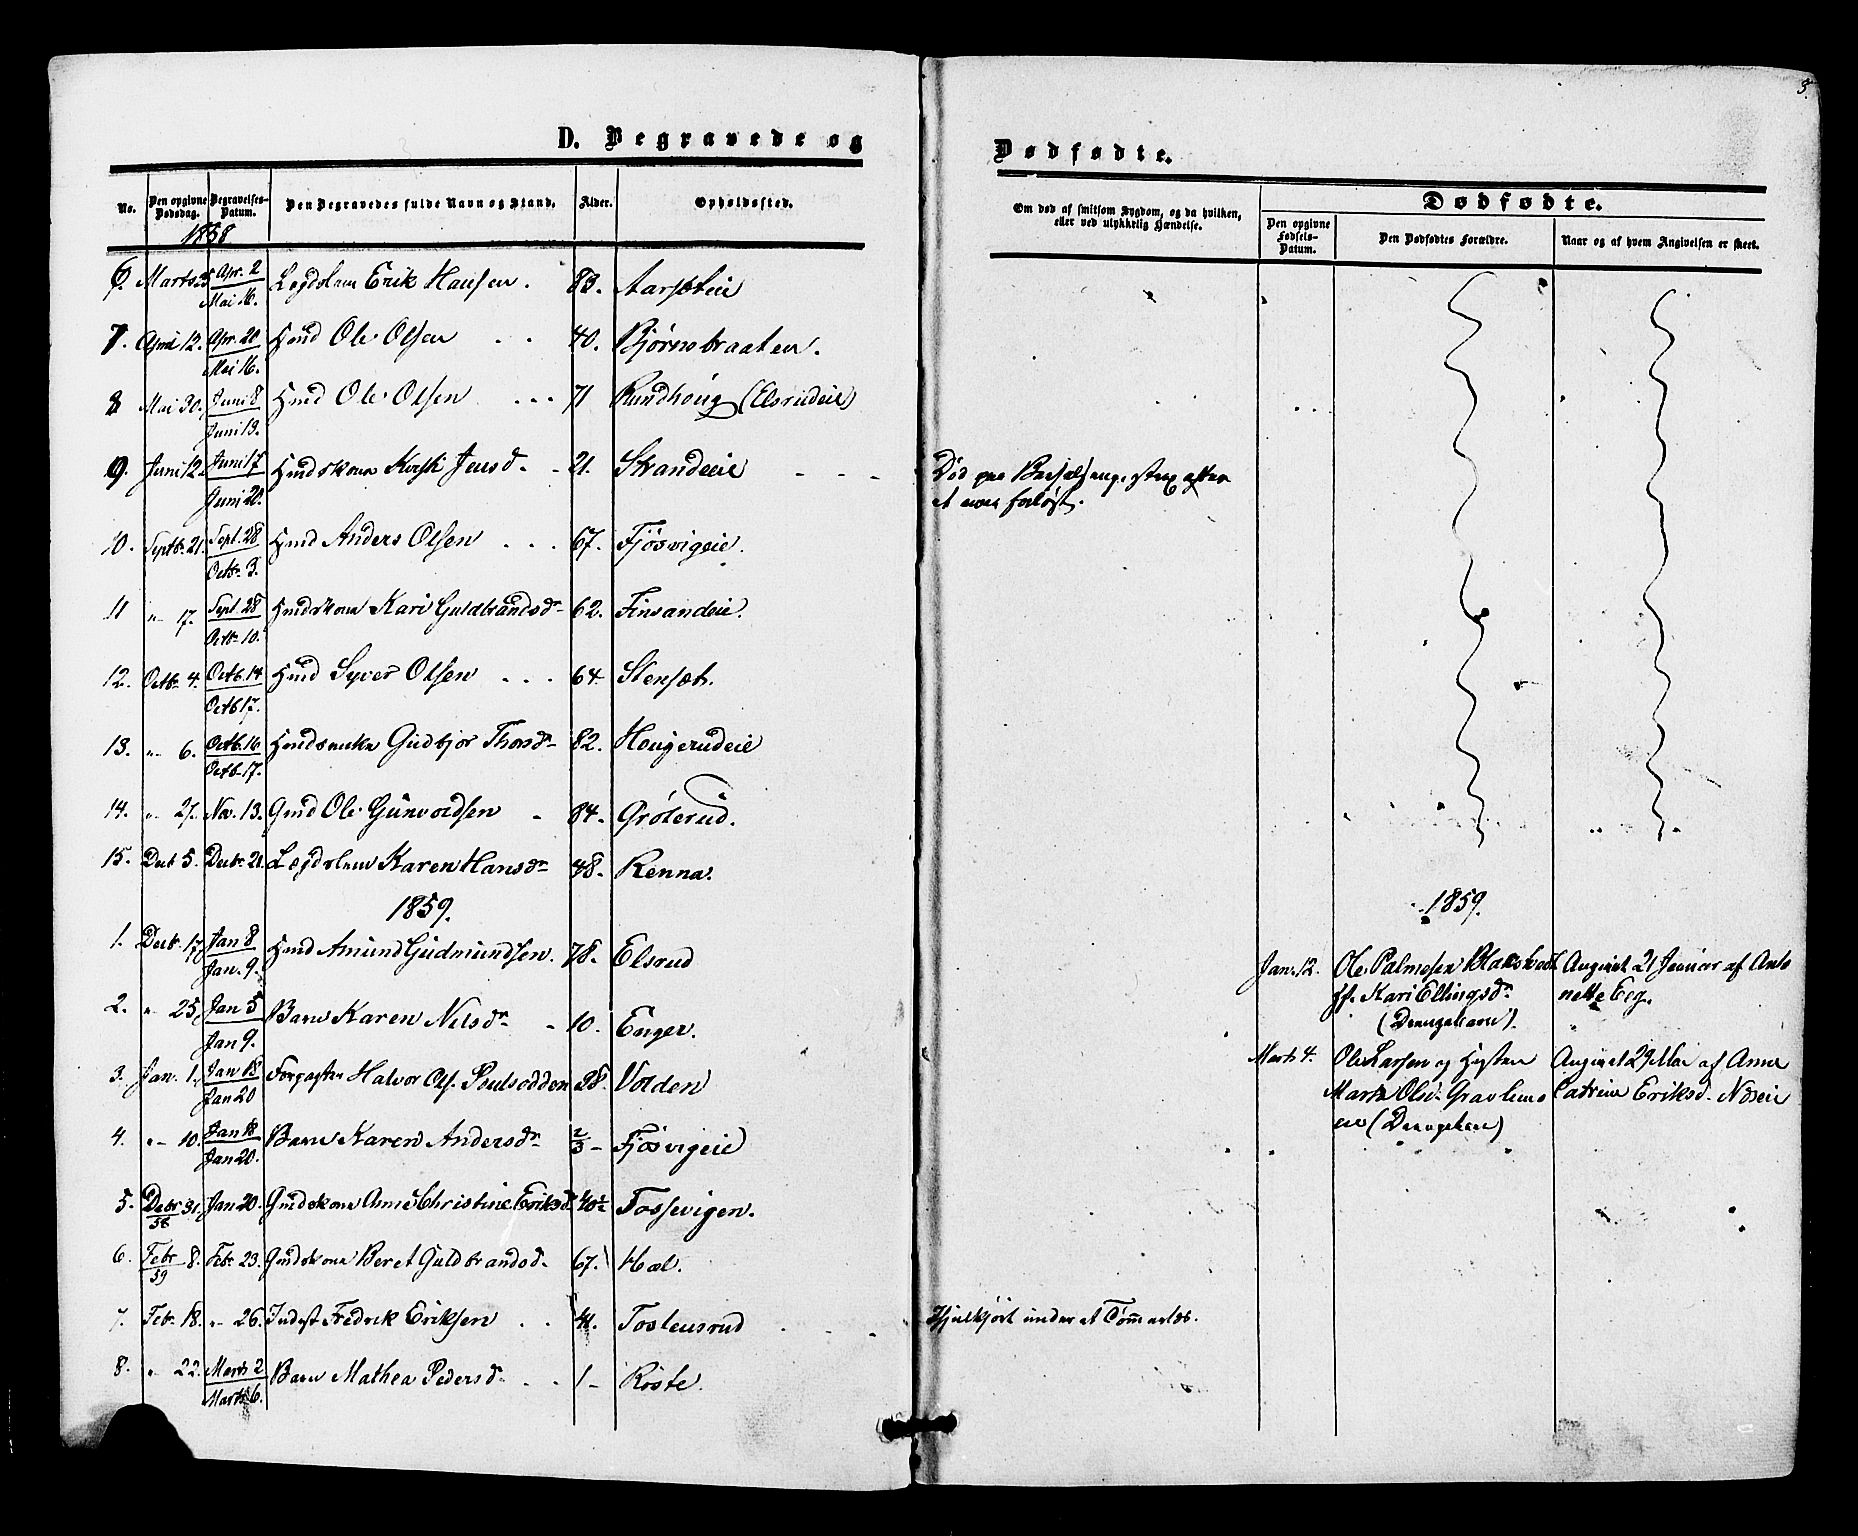 3.
D. Begravede og Dødfødte.
No. Den opgivne Dødsdag. Begravelses-Datum. Den Begravedes fulde Navn og Stand. Alder. Opholdssted. Om død af smitsom Sygdom, og da hvilken, eller ved ulykkelig Hændelse. Dødfødte.
Den opgivne Fødsels-Datum. Den Dødfødtes Forældre. Naar og af hvem Angivelsen er skeet.
1858
6. Marts 25 Apr. 2 Mai 16. Lægdslem Erik Hansen. 83.
7. April 12. Apr. 20 Mai 16. Hmd Ole Olsen 40. Bjørnebraaten.
8 Mai 30. Juni 8 Juni 13. Hmd Ole Olsen 71 Rundhoug (Elsrudeie)
9. Juni 12. Juni 17 Juni 20. Hmdskone Jensd. 21. Strandeie Død paa Barselseng, strax efter
at være forløst.
10. Septbr. 21. Sept. 28 Octbr. 3. Hmd Anders Olsen 67. Fjøsvigeie.
11 " 17. Sept. 28 Octbr. 10. Hmdskone Kari Guldbrandsdr 62. Finsandeie.
12. Octbr. 4. Octb. 14 Octb 17. Hmd Syver Olsen 64 Stensæt.
13. " 6. Octb. 16 Octb. 17. Hmdsenke Gudbjor Thorsdr 82. Hougerudeie
14. " 27. Nov. 13. Gmd Ole Gunvordsen 84. Grøterud.
15. Decb 5. Decbr. 21. Lægdslem Karen Hansdr 48. Renna.
1859. 1859.
1. Decbr. 17 Jan 8 Jan. 9. Hmd Amund Gudmundsen. 78. Elsrud
Jan. 12. Ole Palmesen Angivet 21 Januar af Anto
ff. Kari Ellingsdr nette Eeg.
(Drengebarn).
2. " 25. Jan 5 Jan 9. Barn Karen Nilsdr 10. Enger.
3. Jan. 1. Jan 18 Jan 20 Halvor Ols. Poulsodden 28. Volden
Marts 4. Ole Larsen og Hustru Angivet 29 Mai af Anne
Marte Olsd. Catrine Eriksd. Næseie
(Drengebarn)
4. " 10. Jan 18 Jan 20. Barn Karen Andersdr 2/3 Fjøsvigeie
5. Decbr 58 31. Jan 20. Gmdskone Anne Christine Eriksd. 40½ Fossevigen.
6. Febr 59 8. Febr 23. Gmdskone Beret Guldbrandsd. 67. Hæl.
7. Febr. 18. " 26. Inderst Fredrik Eriksen 41. Tostensrud Ihjelkjørt under et Tømmerlæs.
8. " 22. Marts 2 Marts 6. Barn Mathea Pedersdr 1 Røste.